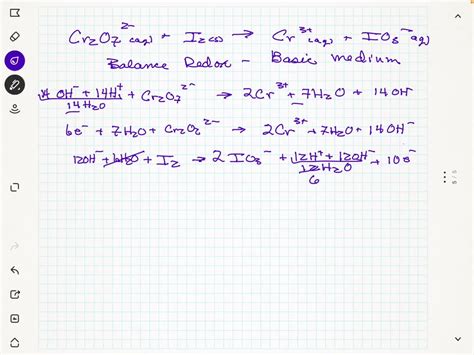 Cr₂O₇²⁻ (aq) + I₂(s) → Cr³⁺ (aq) + IO₃⁻ (aq)
Balance Redox - Basic medium
14 OH⁻ + 14H⁺ + Cr₂O₇²⁻ → 2Cr³⁺ + 7H₂O + 14 OH⁻
14H₂O
6e⁻ + 7H₂O + Cr₂O₇²⁻ → 2Cr³⁺ + 7H₂O + 14OH⁻
12OH⁻ + 6H₂O + I₂ → 2 IO₃⁻ + 12H⁺ + 12OH⁻ + 10e⁻
12H₂O
6
5/5